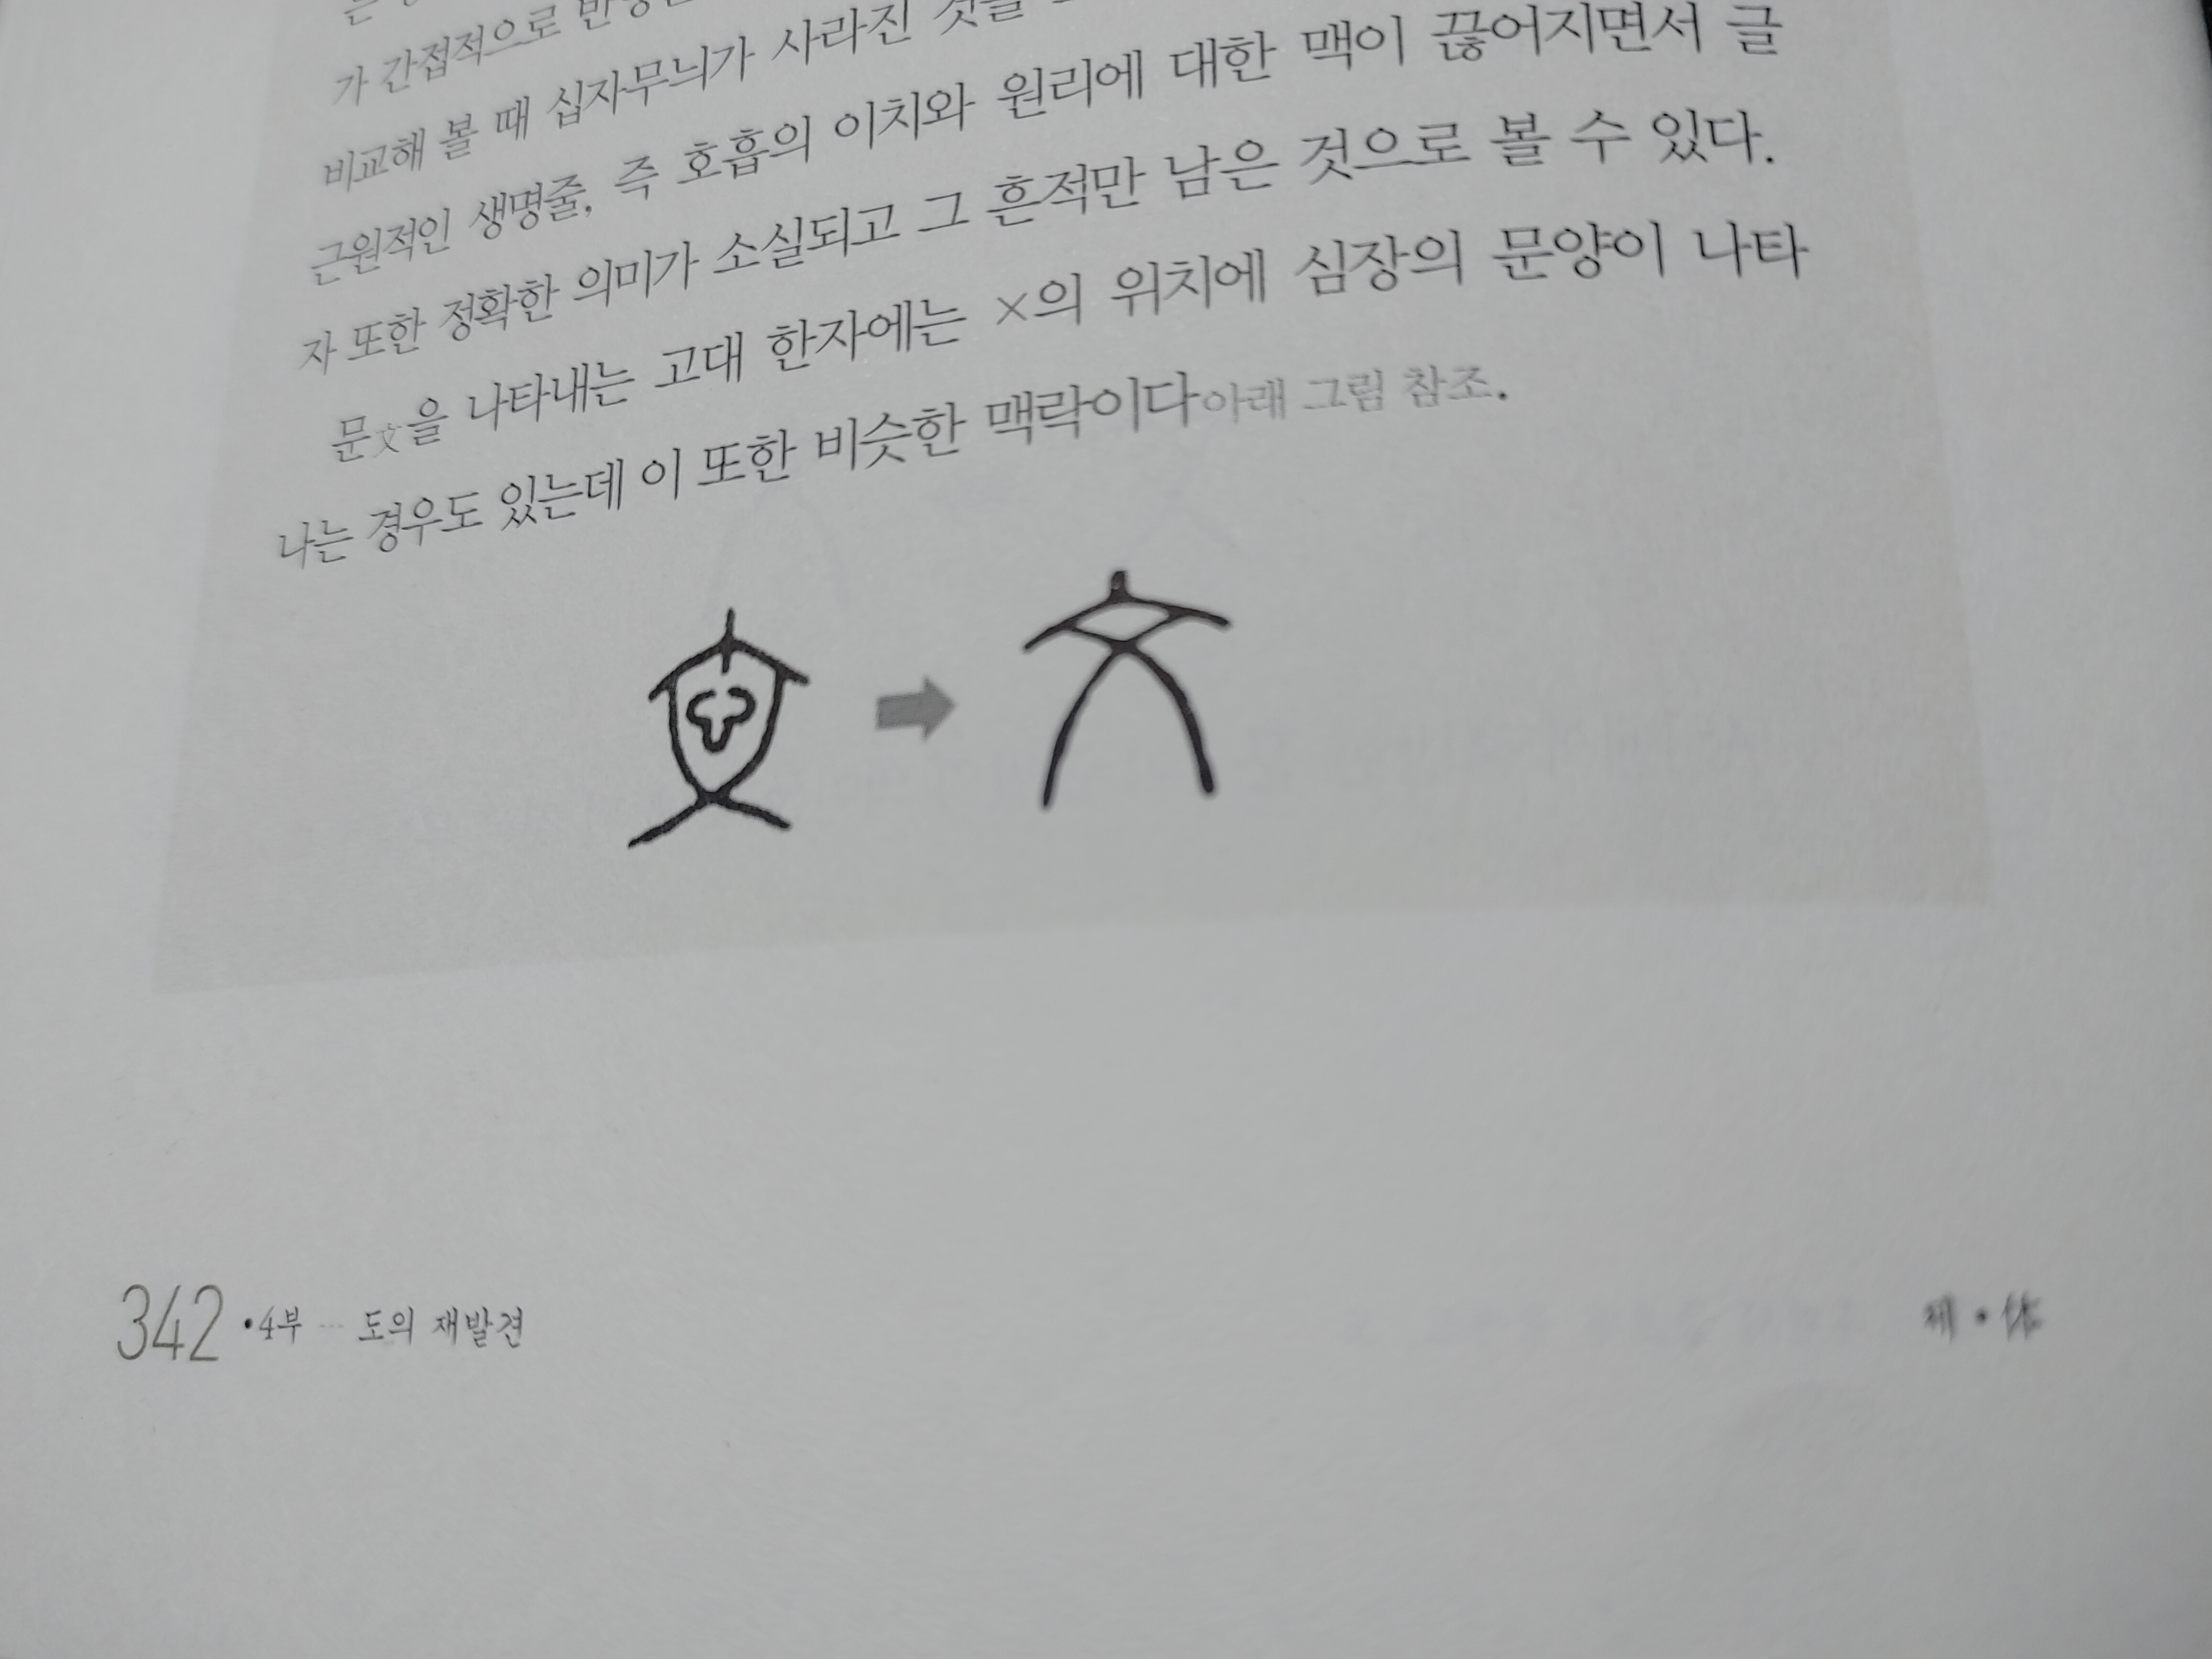 가 간접적으로
비교해 볼 때 십자무늬가 사라진 것을
근원적인 생명줄, 즉 호흡의 이치와 원리에 대한 맥이 끊어지면서 글
자 또한 정확한 의미가 소실되고 그 흔적만 남은 것으로 볼 수 있다.
문文을 나타내는 고대 한자에는 ×의 위치에 심장의 문양이 나타
나는 경우도 있는데 이 또한 비슷한 맥락이다아래 그림 참조.
342 • 4부 … 도의 재발견